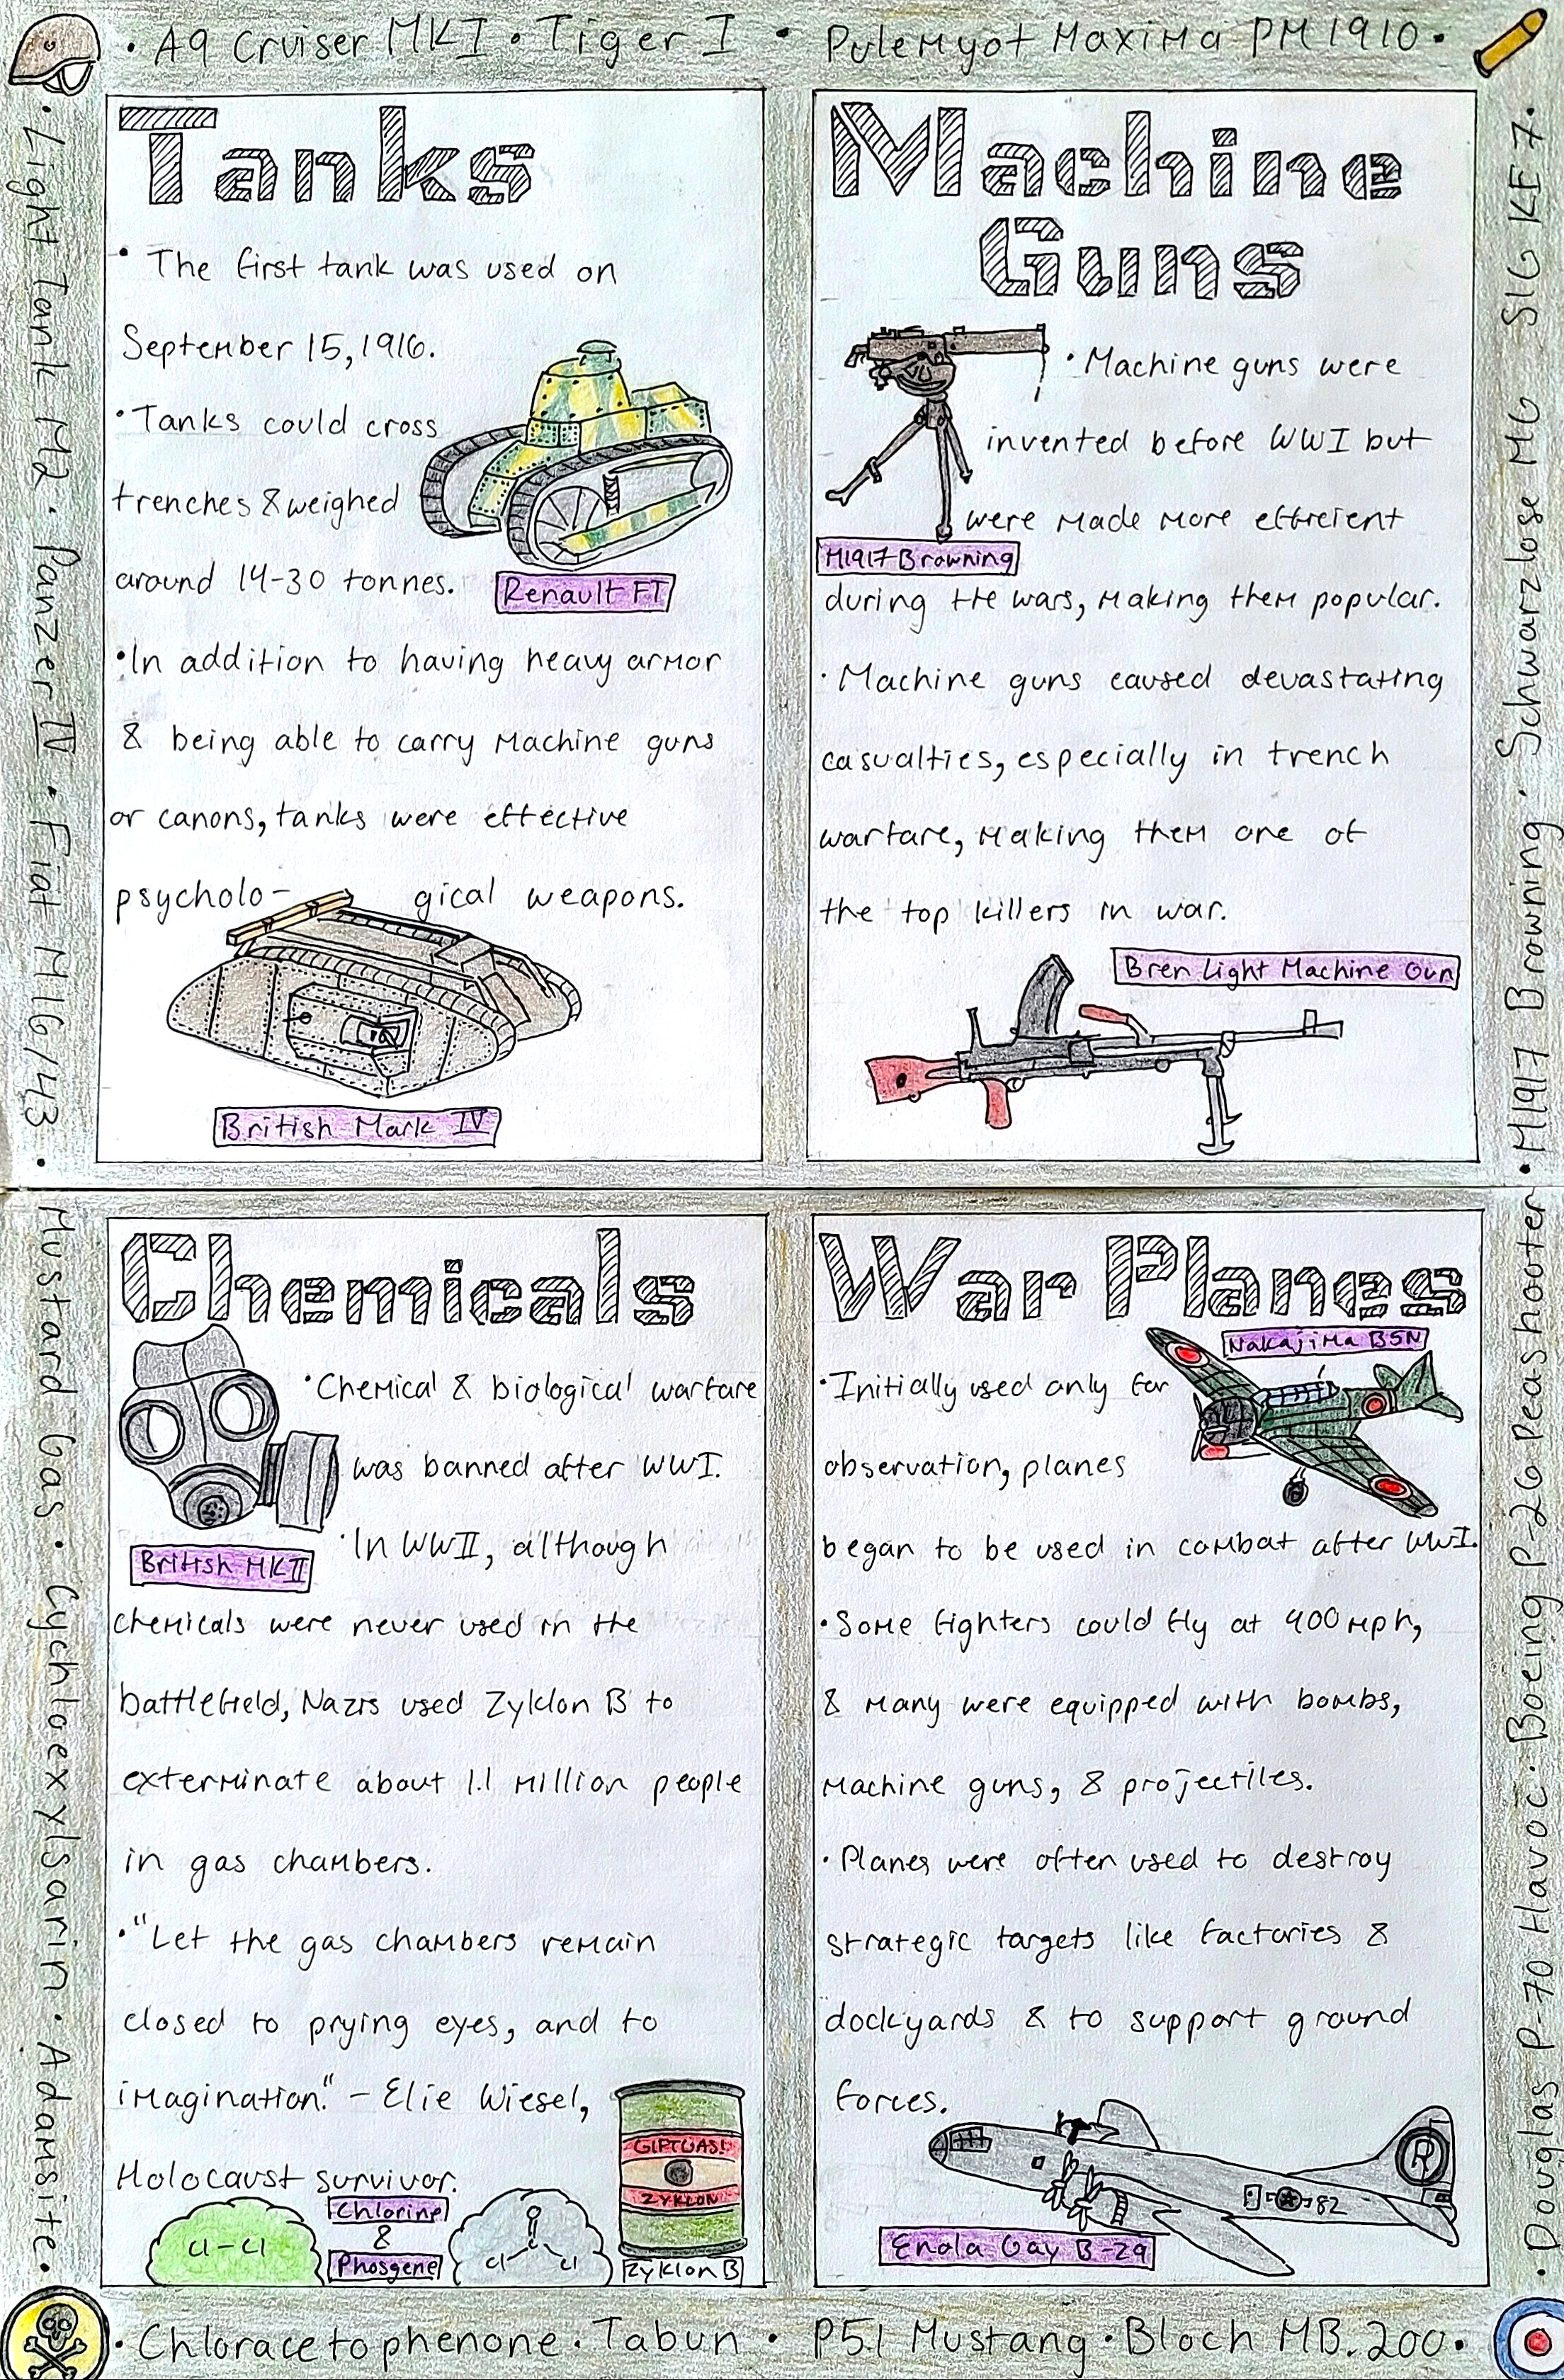 • A9 Cruiser MKI • Tiger I • Pulemyot Maxima PM1910 •
• Light Tank M2 • Panzer IV • Fiat M16/43 •
Tanks
• The first tank was used on
September 15, 1916.
• Tanks could cross
trenches & weighed
around 14-30 tonnes.
Renault FT
• In addition to having heavy armor
& being able to carry machine guns
or canons, tanks were effective
psycholo- gical weapons.
British Mark IV
Machine
Guns
• Machine guns were
invented before WWI but
were made more effecient
M1917 Browning
during the wars, making them popular.
• Machine guns caused devastating
casualties, especially in trench
warfare, making them one of
the top killers in war.
Bren Light Machine Gun
• M1917 Browning • Schwarzlose MG SIG KE7 •
Mustard Gas • Cychloexylsarin • Adamsite •
Chemicals
• Chemical & biological warfare
was banned after WWI.
British MKII
• In WWII, although
chemicals were never used in the
battlefield, Nazis used Zyklon B to
exterminate about 1.1 million people
in gas chambers.
• "Let the gas chambers remain
closed to prying eyes, and to
imagination." - Elie Wiesel,
Holocaust survivor.
Cl-Cl
Chlorine
&
Phosgene
O
Cl Cl
GIFTGAS!
ZYKLON
Zyklon B
War Planes
Nakajima B5N
• Initially used only for
observation, planes
began to be used in combat after WWI.
• Some fighters could fly at 400 mph,
& many were equipped with bombs,
machine guns, & projectiles.
• Planes were often used to destroy
strategic targets like factories &
dockyards & to support ground
forces.
R
82
Enola Gay B-29
• Douglas P-70 Havoc • Boeing P-26 Peashooter
• Chloracetophenone • Tabun • P51 Mustang • Bloch MB.200 •